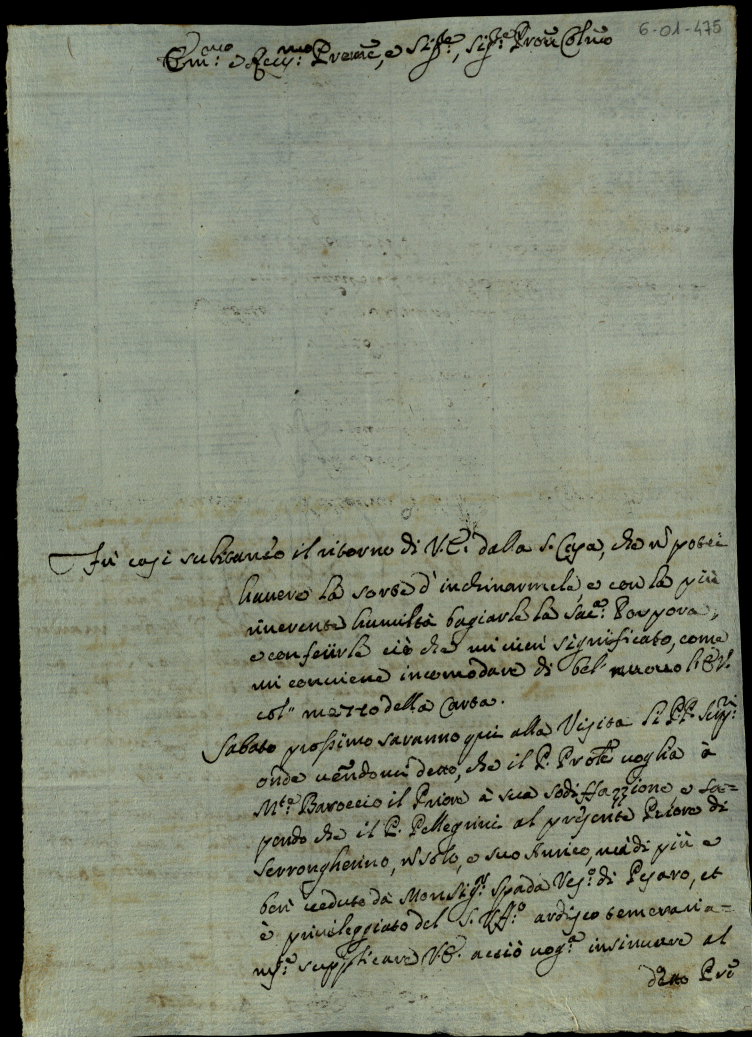 6-01-475
Em.mo e Rev.mo Prene, e Sig.re, Sig.re Pron Colmo
Fù così subitaneo il ritorno di V.E. dalla S. Casa, che nō potei
havere la sorte d'inchinarmele, e con la più
riverente humiltà bagiarle la Sac.a Porpora,
e conferirle ciò che mi vien significato, come
mi conviene incomodare di bel nuovo l'E.V.
col mezzo della Carta.
Sabato prossimo saranno qui alla Visita li PP.
onde venēdomi detto, che il P. Prote voglia à
M.te Baroccio il Priore à sua sodisfazzione, e sa=
pendo che il P. Pellegrini al presente Priore di
Serrongherino, nō solo, e suo Amico, mà di più e
ben veduto da Monsig.r Spada Ves.o di Pesaro, et
è privileggiato del S. Uff.o ardisco temeraria=
m.te supplicare V.E. acciò vog.a insinuare al
detto Prē